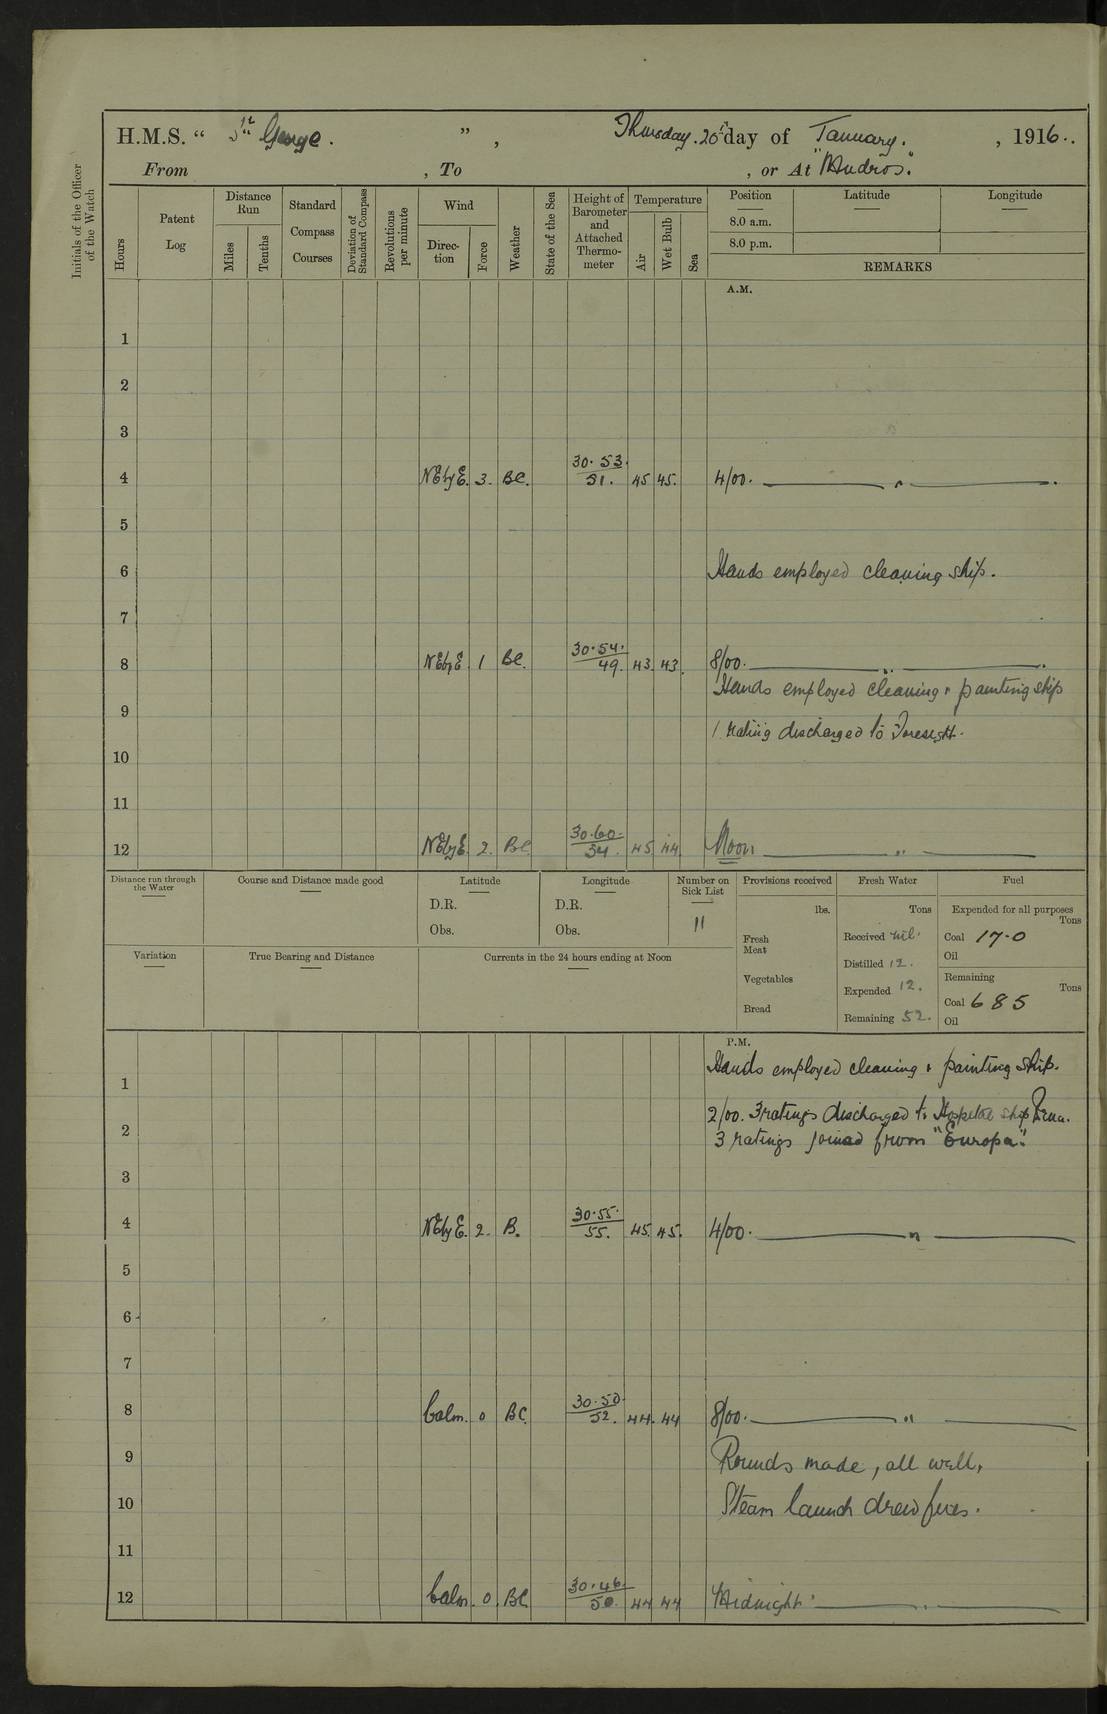 H.M.S. “ St George. ”, Thursday. 20th day of January. , 1916..
From , To , or At "Mudros".
Initials of the Officer of the Watch
Hours
Patent Log
Distance Run
Miles
Tenths
Standard Compass Courses
Deviation of Standard Compass
Revolutions per minute
Wind
Direction
Force
Weather
State of the Sea
Height of Barometer and Attached Thermometer
Temperature
Air
Wet Bulb
Sea
Position Latitude Longitude
8.0 a.m.
8.0 p.m.
REMARKS
A.M.
1
2
3
4 NEbyE. 3. BC. 30.53. 51. 45 45. 4/00. "
5
6 Hands employed cleaning ship.
7
8 NEbyE 1 BC. 30.54. 49. 43. 43. 8/00. "
Hands employed cleaning & painting ship
9
1 rating discharged to Foresight.
10
11
12 NEbyE. 2. BC. 30.60. 54. 45 44. Noon "
Distance run through the Water
Course and Distance made good
Latitude
D.R.
Obs.
Longitude
D.R.
Obs.
Number on Sick List
11
Provisions received
lbs.
Fresh Meat
Vegetables
Bread
Fresh Water
Tons
Received nil.
Distilled 12.
Expended 12.
Remaining 52.
Fuel
Expended for all purposes
Tons
Coal 17.0
Oil
Remaining
Tons
Coal 685
Oil
Variation
True Bearing and Distance
Currents in the 24 hours ending at Noon
P.M.
Hands employed cleaning & painting ship.
1
2/00. 3 ratings discharged to Hospital ship
2
3 ratings joined from "Europa".
3
4 NEbyE. 2. B. 30.55. 55. 45. 45. 4/00. "
5
6
7
8 Calm. 0 BC. 30.50. 52. 44. 44 8/00. "
9 Rounds made, all well,
10 Steam launch drew fires.
11
12 Calm. 0. BC 30.46. 50. 44 44 Midnight. "